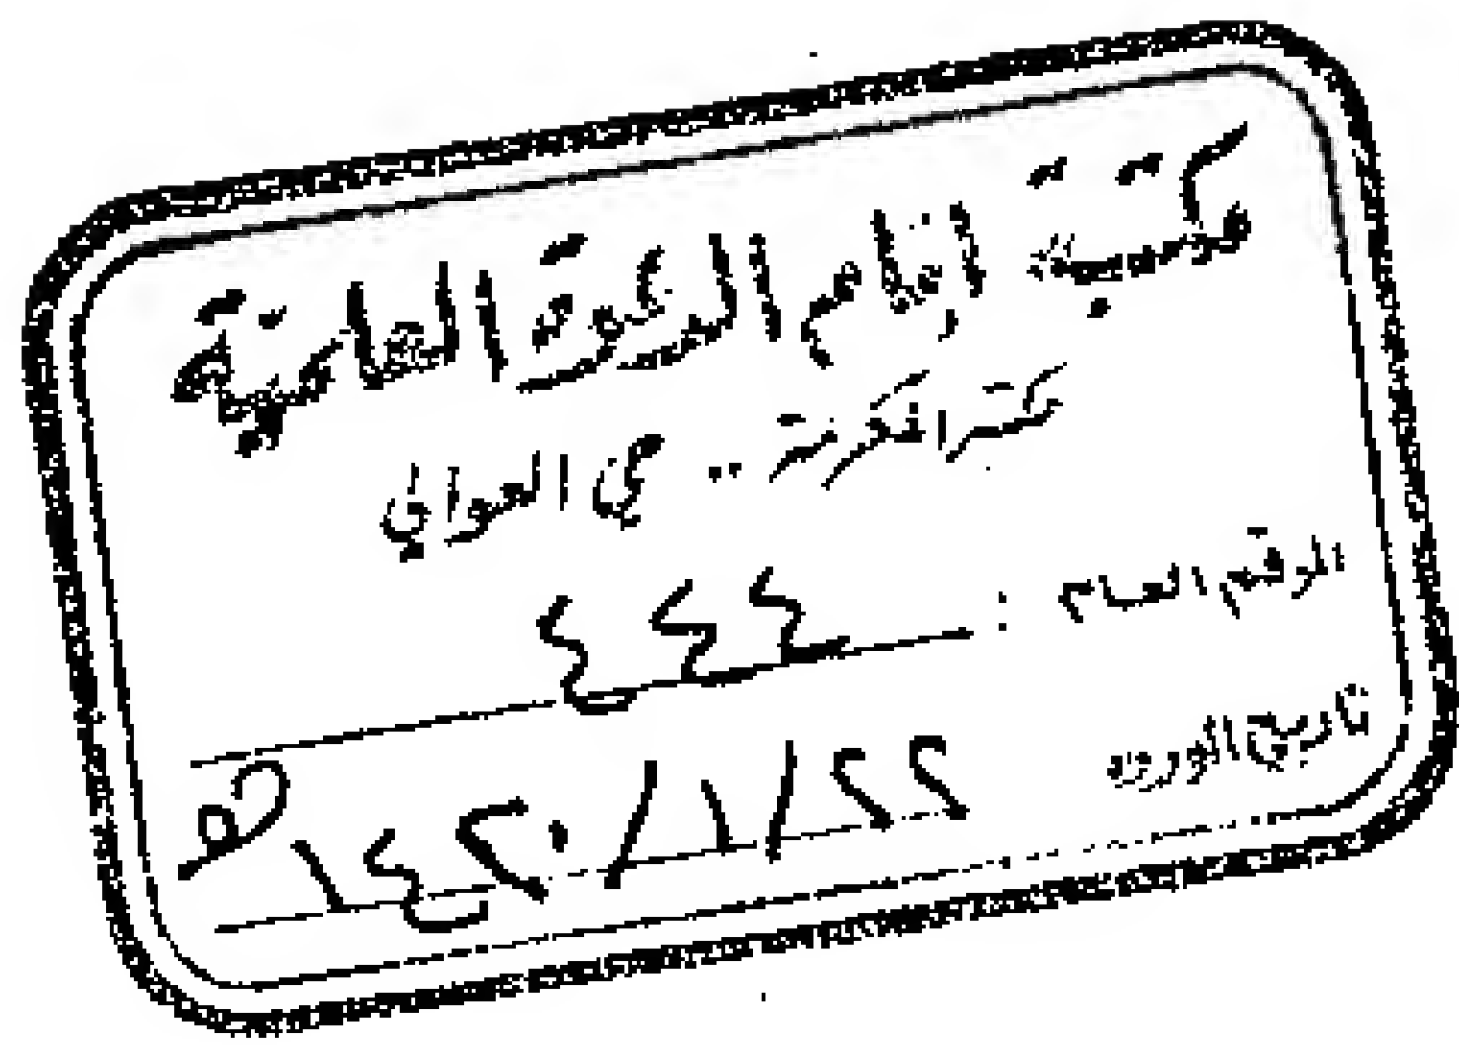 مكتبة إمام الدعوة العلمية
مكة المكرمة .. حي العوالي
الرقم العام : ٤٤٤
تاريخ الورود ٢٢/١/١٤٢٠هـ